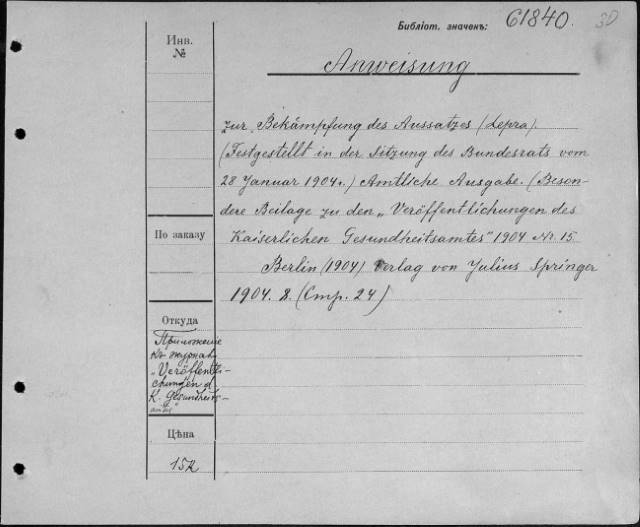 Библіот. значенъ: 61840. 30
Инв.
№
Anweisung
zur Bekämpfung des Aussatzes (Lepra).
(Festgestellt in der Sitzung des Bundesrats vom
28 Januar 1904.) Amtliche Ausgabe. (Beson-
dere Beilage zu den „Veröffentlichungen des
Kaiserlichen Gesundheitsamtes" 1904 Nr. 15
Berlin (1904) Verlag von Julius Springer
1904. 8. (Стр. 24)
По заказу
Откуда
Приложеніе
къ журнал.
„Veröffentli-
chungen d.
K. Gesundheits-
amtes"
Цѣна
15к